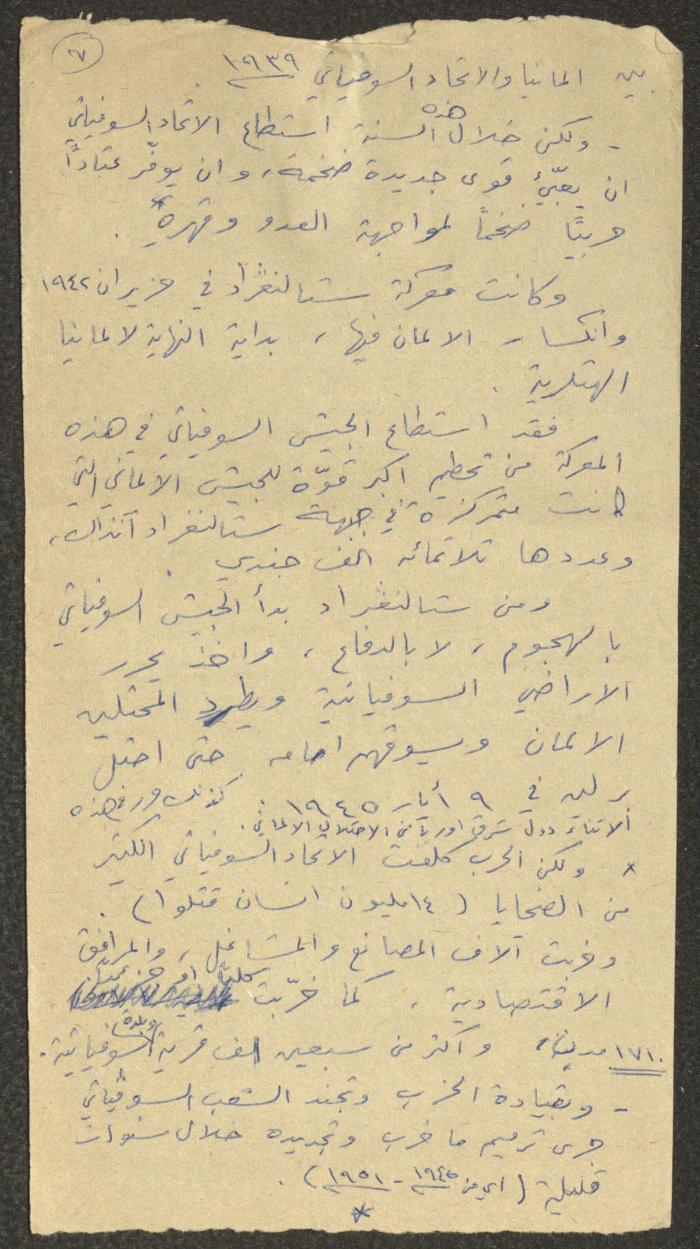 ٧
بين المانيا والاتحاد السوفياتي ١٩٣٩ .
- ولكن خلال هذه السنة استطاع الاتحاد السوفياتي
ان يعبّئ قوى جديدة ضخمة، وان يوفّر عتاداً
حربيّا ضخماً لمواجهة العدو وقهره .
وكانت معركة ستالنغراد في حزيران ١٩٤٢
وانكسار الالمان فيها، بداية النهاية لالمانيا
الهتلرية .
فقد استطاع الجيش السوفياتي في هذه
المعركة من تحطيم اكبر قوّة للجيش الالماني التي
كانت متمركزة في جبهة ستالنغراد آنذاك،
وعددها ثلاثمائه الف جندي .
ومن ستالنغراد بدأ الجيش السوفياتي
بالهجوم، لا بالدفاع، واخذ يحرر
الاراضي السوفياتية ويطرد المحتلين
الالمان ويسوقهم امامه حتى احتل
برلين في ٩ أيار ١٩٤٥ . كذلك حرر في هذه
الاثناء دول شرق اوربا من الاحتلال الالماني .
* ولكن الحرب كلفت الاتحاد السوفياتي الكثير
من الضحايا (١٤ مليون انسان قتلوا) .
وخربت آلاف المصانع والمشاغل، والمرافق
الاقتصادية . كما خرّبت كليّاً او جزئيّاً
١٧١٠ مدينة، واكثر من سبعين الف قرية (وبلدة) سوفياتية .
- وبقيادة الحزب وتجند الشعب السوفياتي
جرى ترميم ما خرب وتجديده خلال سنوات
قليلة (اي من ١٩٤٥ - ١٩٥١) .
*